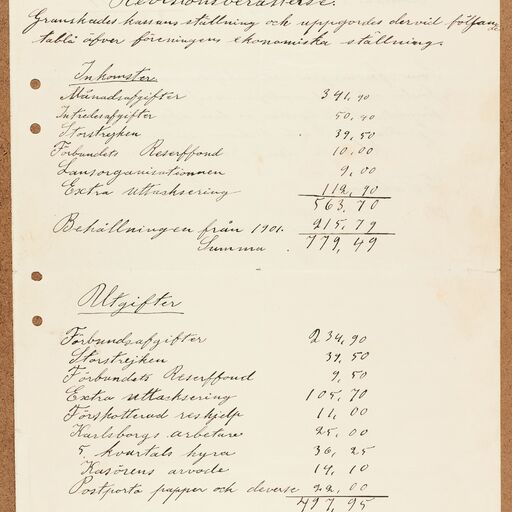 Revisionsberättelse.
Granskades kassans ställning och uppgjordes dervid följande
tablå öfver föreningens ekonomiska ställning.
Inkomster
Månadsafgifter 341,90
Inträdesafgifter 50,40
Storstrejken 39,50
Förbundets Reserffond 10,00
Lansorganisationnen 9,00
Extra uttacksering 112,90
563,70
Behållningen från 1901. 215,79
Summa 779,49
Utgifter
Förbundsafgifter 234,90
Storstrejken 39,50
Förbundets Reserffond 9,50
Extra uttacksering 105,70
Förskotterad reshjelp 11,00
Karlsborgs arbetare 25,00
5. kvartals hyra 36,25
Kasörens arvode 14,10
Postporto papper och deverse 22,00
497,95